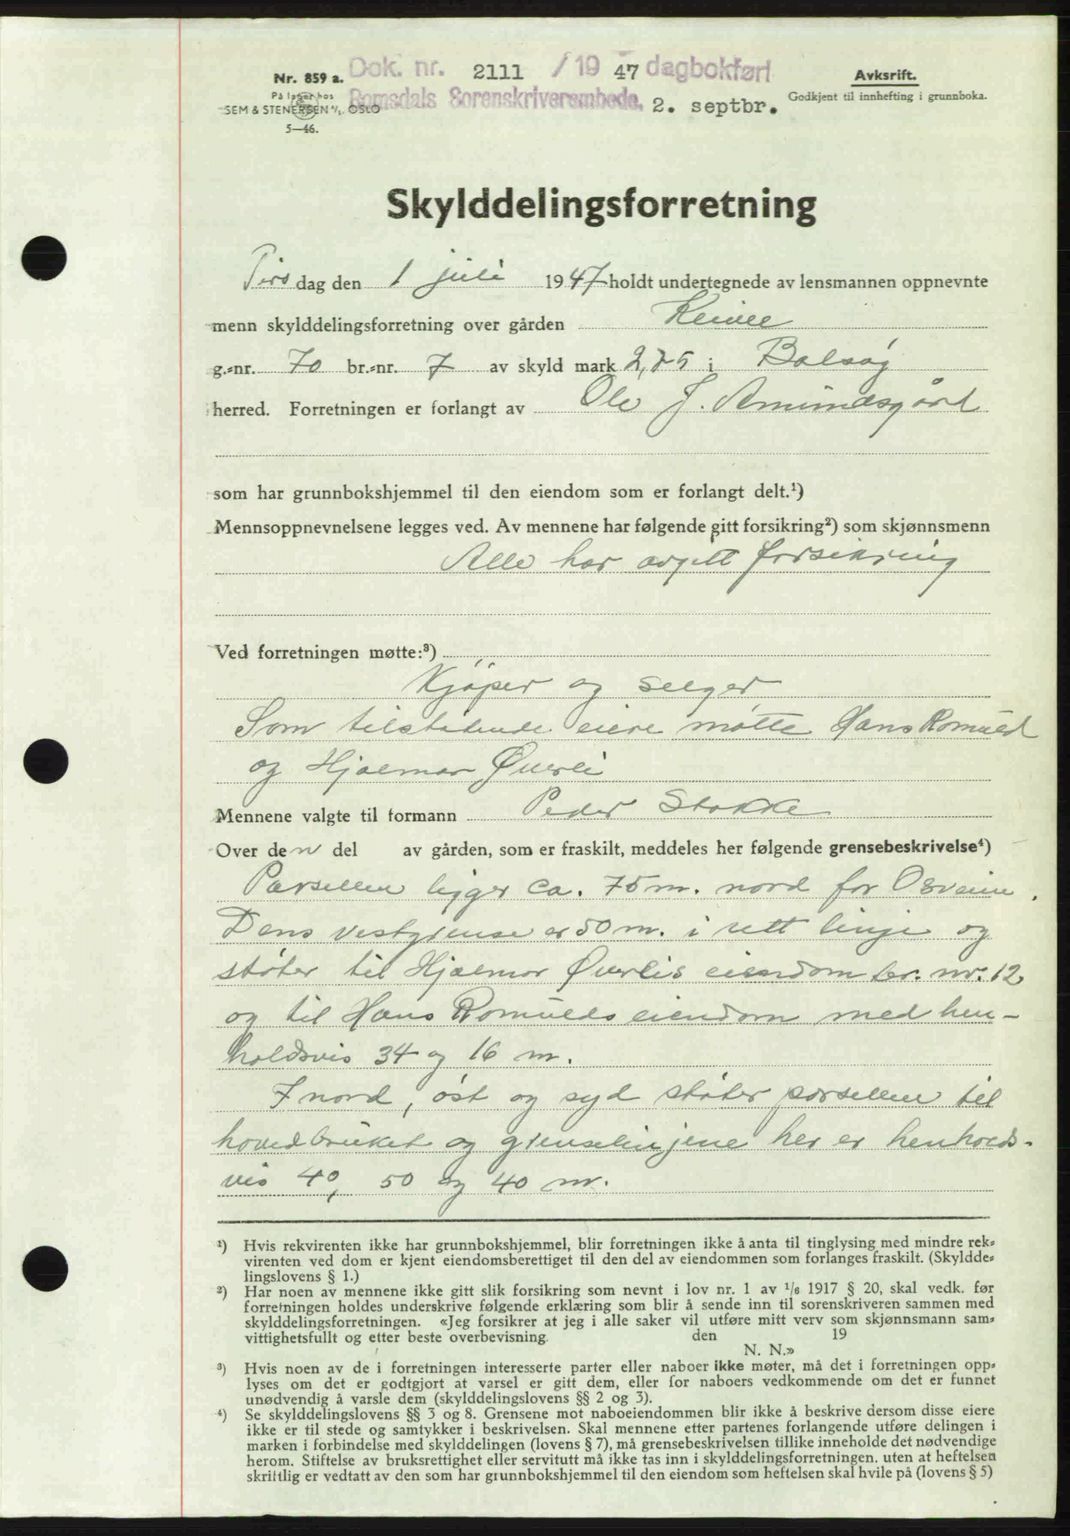 Nr. 859 a.
På lager hos
SEM & STENERSEN A/S. OSLO
5—46.
Dok. nr. 2111 / 1947 dagbokført
Romsdals Sorenskriverembede. 2. septbr.
Avksrift.
Godkjent til innhefting i grunnboka.
Skylddelingsforretning
Tirsdag den 1 juli 1947 holdt undertegnede av lensmannen oppnevnte
menn skylddelingsforretning over gården
g.-nr. 70 br.-nr. 7 av skyld mark 2,75 i Bolsøy
herred. Forretningen er forlangt av Ole J. Amundsgård
som har grunnbokshjemmel til den eiendom som er forlangt delt.¹)
Mennsoppnevnelsene legges ved. Av mennene har følgende gitt forsikring²) som skjønnsmenn
Alle har avgitt forsikring
Ved forretningen møtte:³)
Kjøper og selger
Som tilstøtende eiere møtte Hans Romuld
og Hjalmar Øverli
Mennene valgte til formann Peder Stokke
Over den del av gården, som er fraskilt, meddeles her følgende grensebeskrivelse⁴)
Parsellen ligger ca. 75 m. nord for Osveien.
Dens vestgrense er 50 m. i rett linje og
støter til Hjalmar Øverlis eiendom br. nr. 12
og til Hans Romulds eiendom med hen-
holdsvis 34 og 16 m.
I nord, øst og syd støter parsellen til
hovedbruket og grenselinjene her er henholds-
vis 40, 50 og 40 m.
¹) Hvis rekvirenten ikke har grunnbokshjemmel, blir forretningen ikke å anta til tinglysing med mindre rek-
virenten ved dom er kjent eiendomsberettiget til den del av eiendommen som forlanges fraskilt. (Skyldde-
lingslovens § 1.)
²) Har noen av mennene ikke gitt slik forsikring som nevnt i lov nr. 1 av 1/6 1917 § 20, skal vedk. før
forretningen holdes underskrive følgende erklæring som blir å sende inn til sorenskriveren sammen med
skylddelingsforretningen. «Jeg forsikrer at jeg i alle saker vil utføre mitt verv som skjønnsmann sam-
vittighetsfullt og etter beste overbevisning. den 19
N. N.»
³) Hvis noen av de i forretningen interesserte parter eller naboer ikke møter, må det i forretningen opp-
lyses om det er godtgjort at varsel er gitt dem, eller for naboers vedkommende om det er funnet
unødvendig å varsle dem (skylddelingslovens §§ 2 og 3).
⁴) Se skylddelingslovens §§ 3 og 8. Grensene mot naboeiendommen blir ikke å beskrive dersom disse eiere
ikke er til stede og samtykker i beskrivelsen. Skal mennene etter partenes forlangende utføre delingen i
marken i forbindelse med skylddelingen (lovens § 7), må grensebeskrivelsen tillike inneholde det nødvendige
herom. Stiftelse av bruksrettighet eller servitutt må ikke tas inn i skylddelingsforretningen, uten at heftelsen
skriftlig er vedtatt av den som har grunnbokshjemmel til den eiendom som heftelsen skal hvile på (lovens § 5)